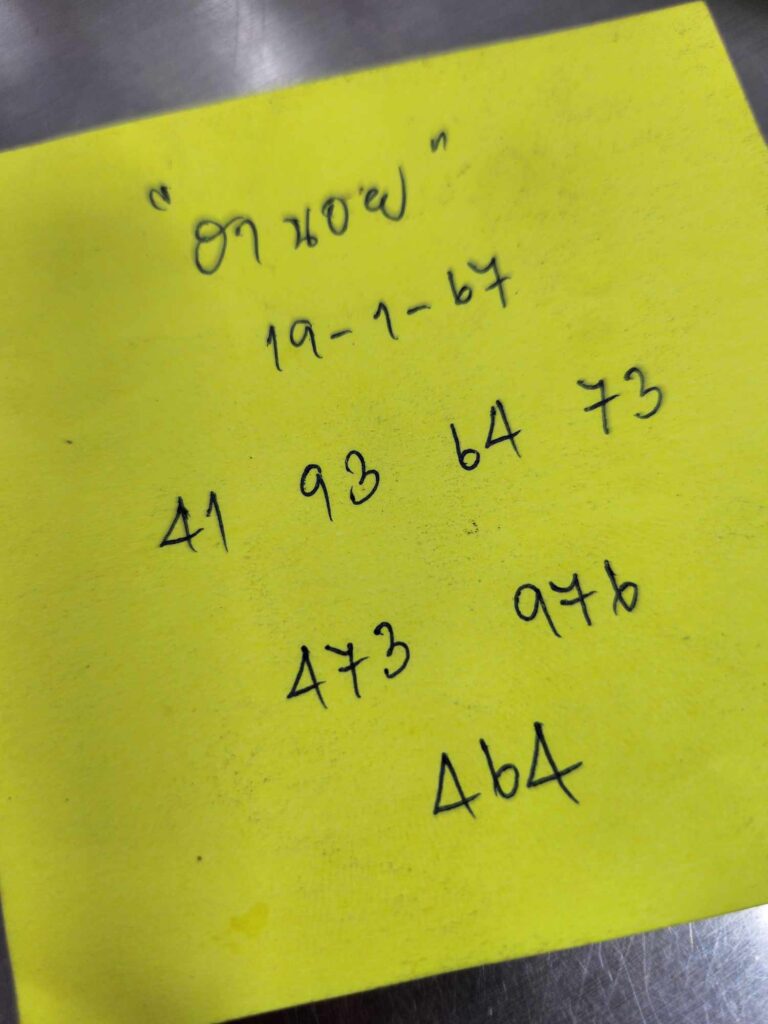 "อานอย"
19-1-67
41 93 64 73
473 976
464